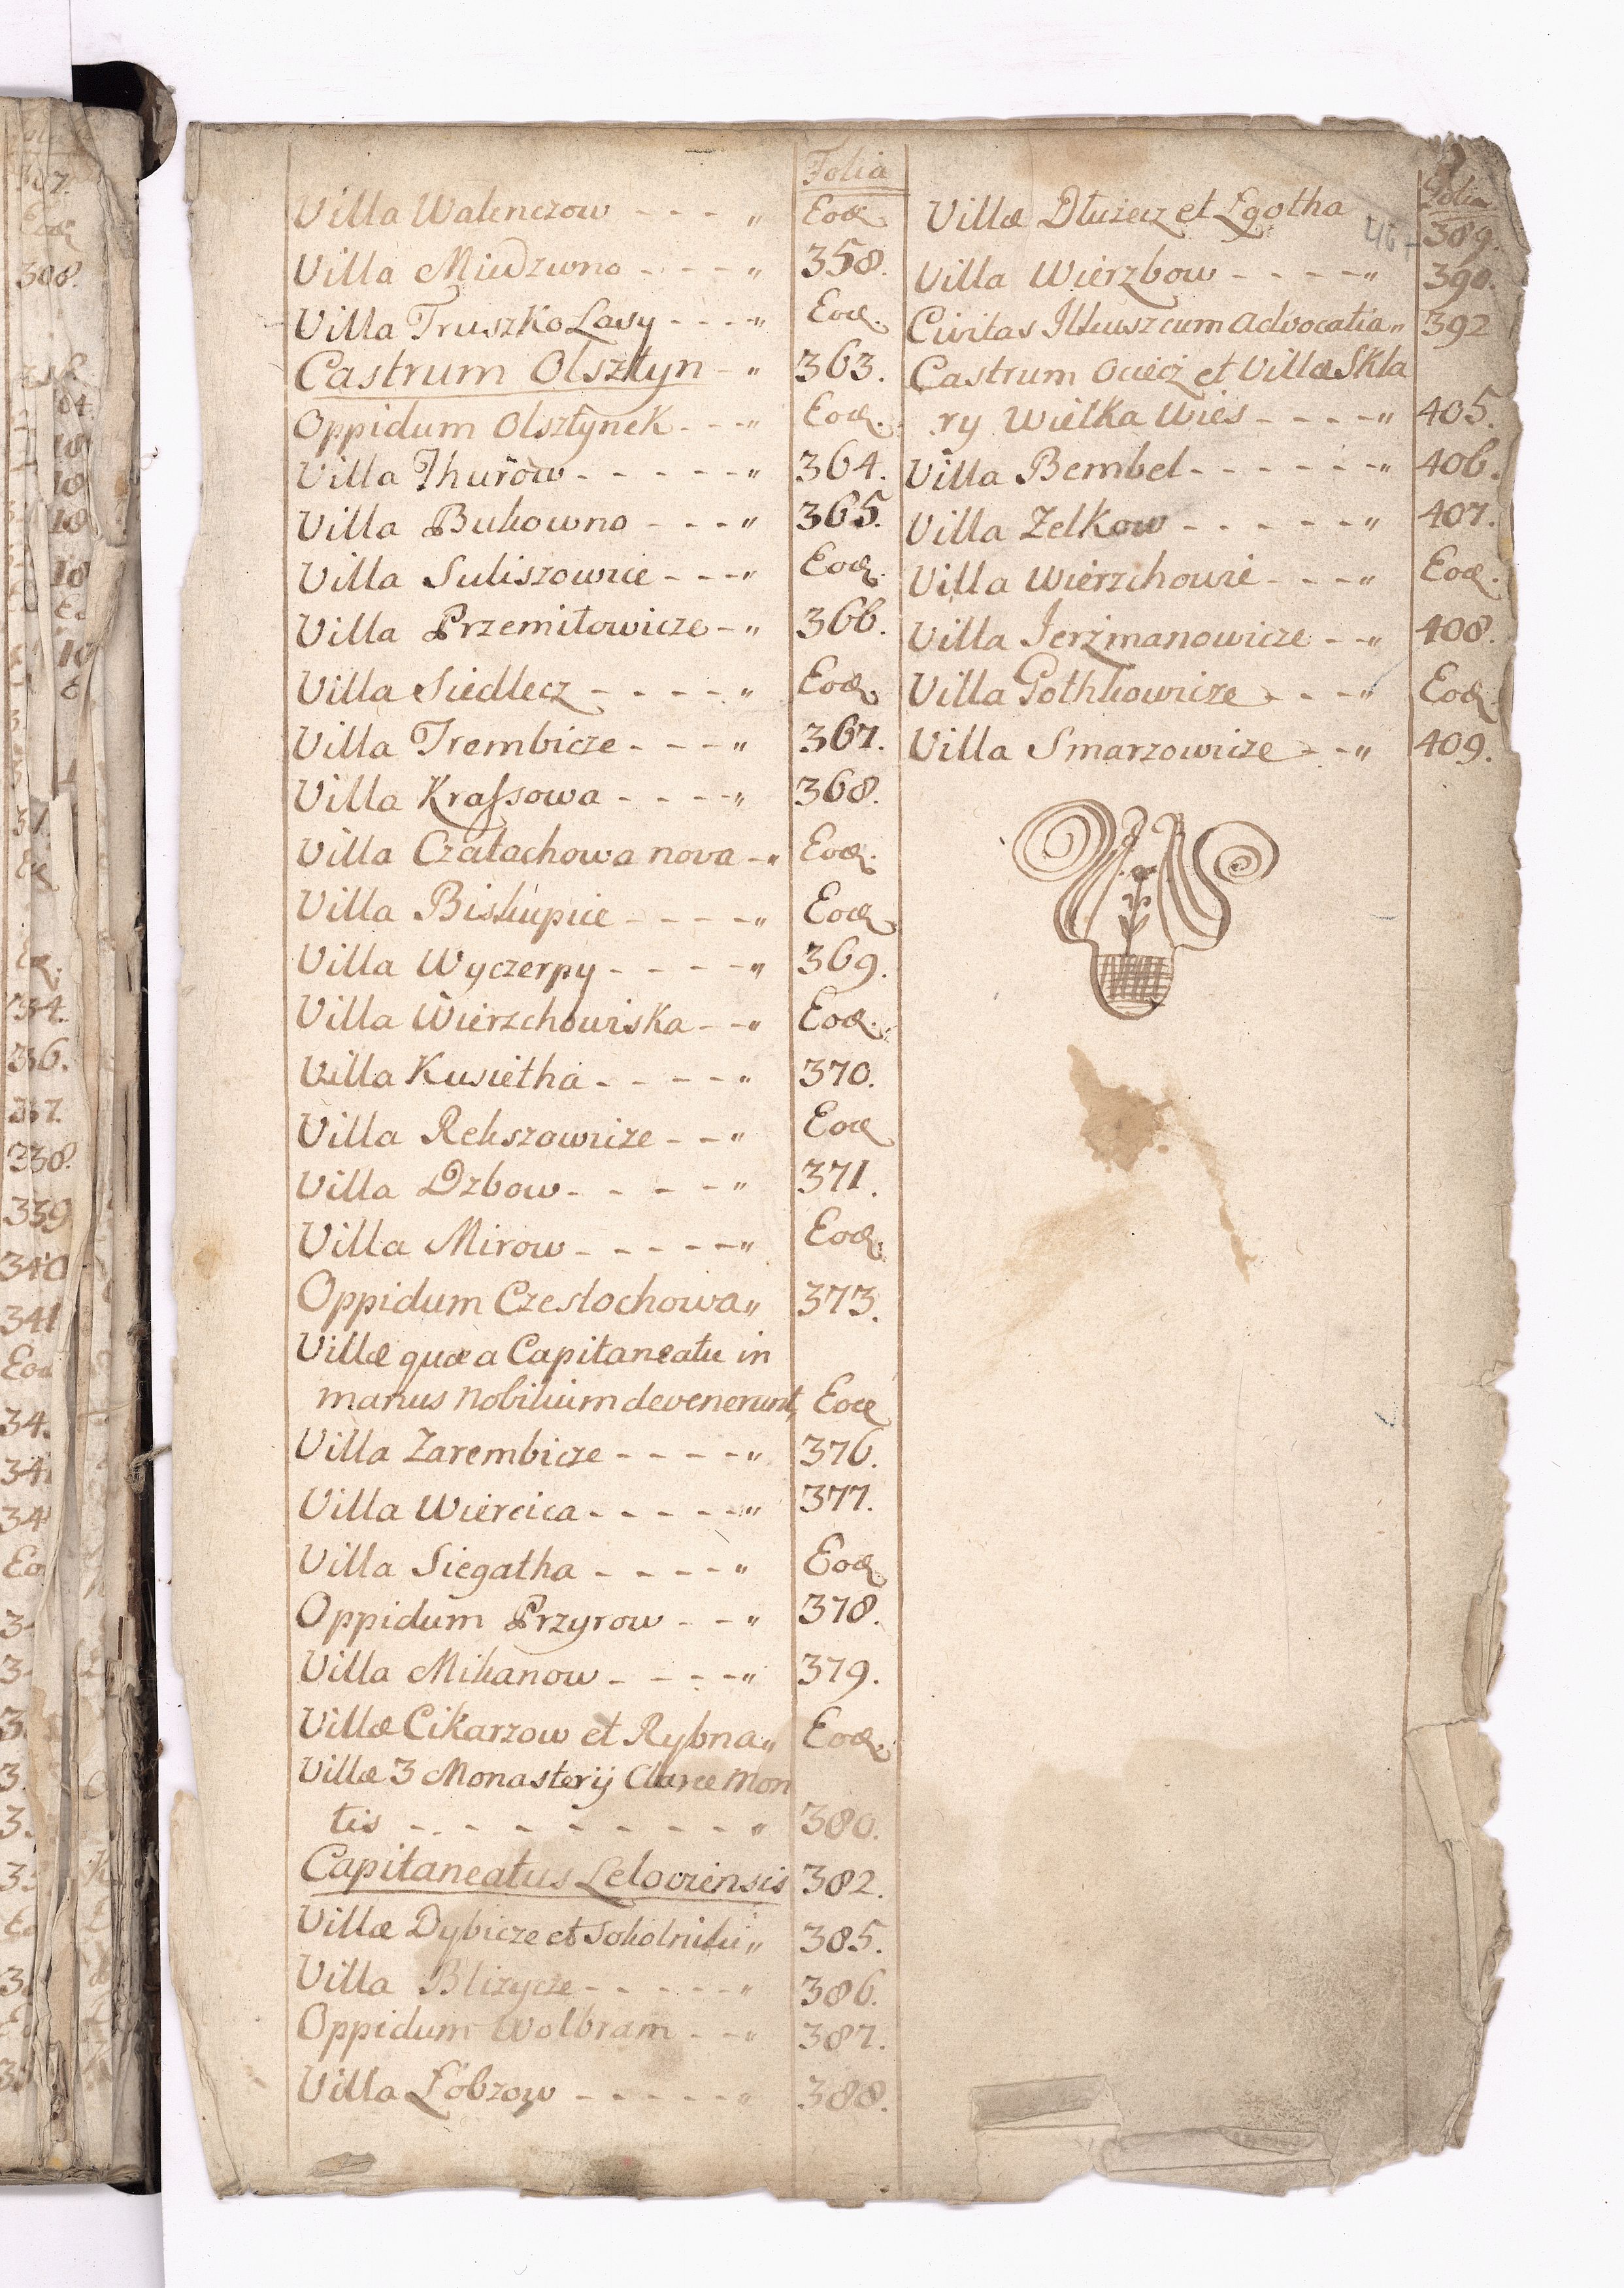 Folia
Villa Walenczow - - - " Eod.
Villa Miedzwno - - - - " 358.
Villa Truszkolasy - - - - " Eod.
Castrum Olsztyn - " 363.
Oppidum Olsztynek - - - " Eod.
Villa Thurow - - - - - - " 364.
Villa Bukowno - - - - " 365.
Villa Suliszowice - - - - " Eod.
Villa Przemiłowicze - " 366.
Villa Siedlecz - - - - - " Eod.
Villa Trembicze - - - - " 367.
Villa Krassowa - - - - " 368.
Villa Czatachowa nova - " Eod.
Villa Biskupice - - - - - " Eod.
Villa Wyczerpy - - - - - " 369.
Villa Wierzchowiska - - " Eod.
Villa Kusietha - - - - - " 370.
Villa Rekszowicze - - " Eod
Villa Dzbow - - - - - " 371.
Villa Mirow - - - - - - " Eod.
Oppidum Czestochowa " 373.
Villæ quæ a Capitaneatu in
manus Nobilium devenerunt, Eod
Villa Zarembicze - - - - - " 376.
Villa Wiercica - - - - - - " 377.
Villa Siegatha - - - - - " Eod
Oppidum Przyrow - - " 378.
Villa Mikanow - - - - - " 379.
Villæ Cikarzow et Rybna " Eod.
Villæ 3 Monasterij Claræ Mon
tis - - - - - - - - - " 380.
Capitaneatus Lelovziensis 382.
Villæ Dybicze et Sokolniki " 385.
Villa Blizycze - - - - - - " 386.
Oppidum Wolbram - - " 387.
Villa Łobzow - - - - - - " 388.
Folia
Villæ Dłużecz et Lgotha 389.
Villa Wierzbow - - - - - " 390.
Civitas Ilkusz cum Advocatia " 392
Castrum Ociecz et Villæ Skla
ry Wielka Wies - - - - - " 405.
Villa Bembel - - - - - - - " 406.
Villa Zelkow - - - - - - " 407.
Villa Wierzchowie - - - - " Eod.
Villa Jerzmanowicze - - " 408.
Villa Gothkowicze - - - " Eod
Villa Smarzowicze - - " 409.